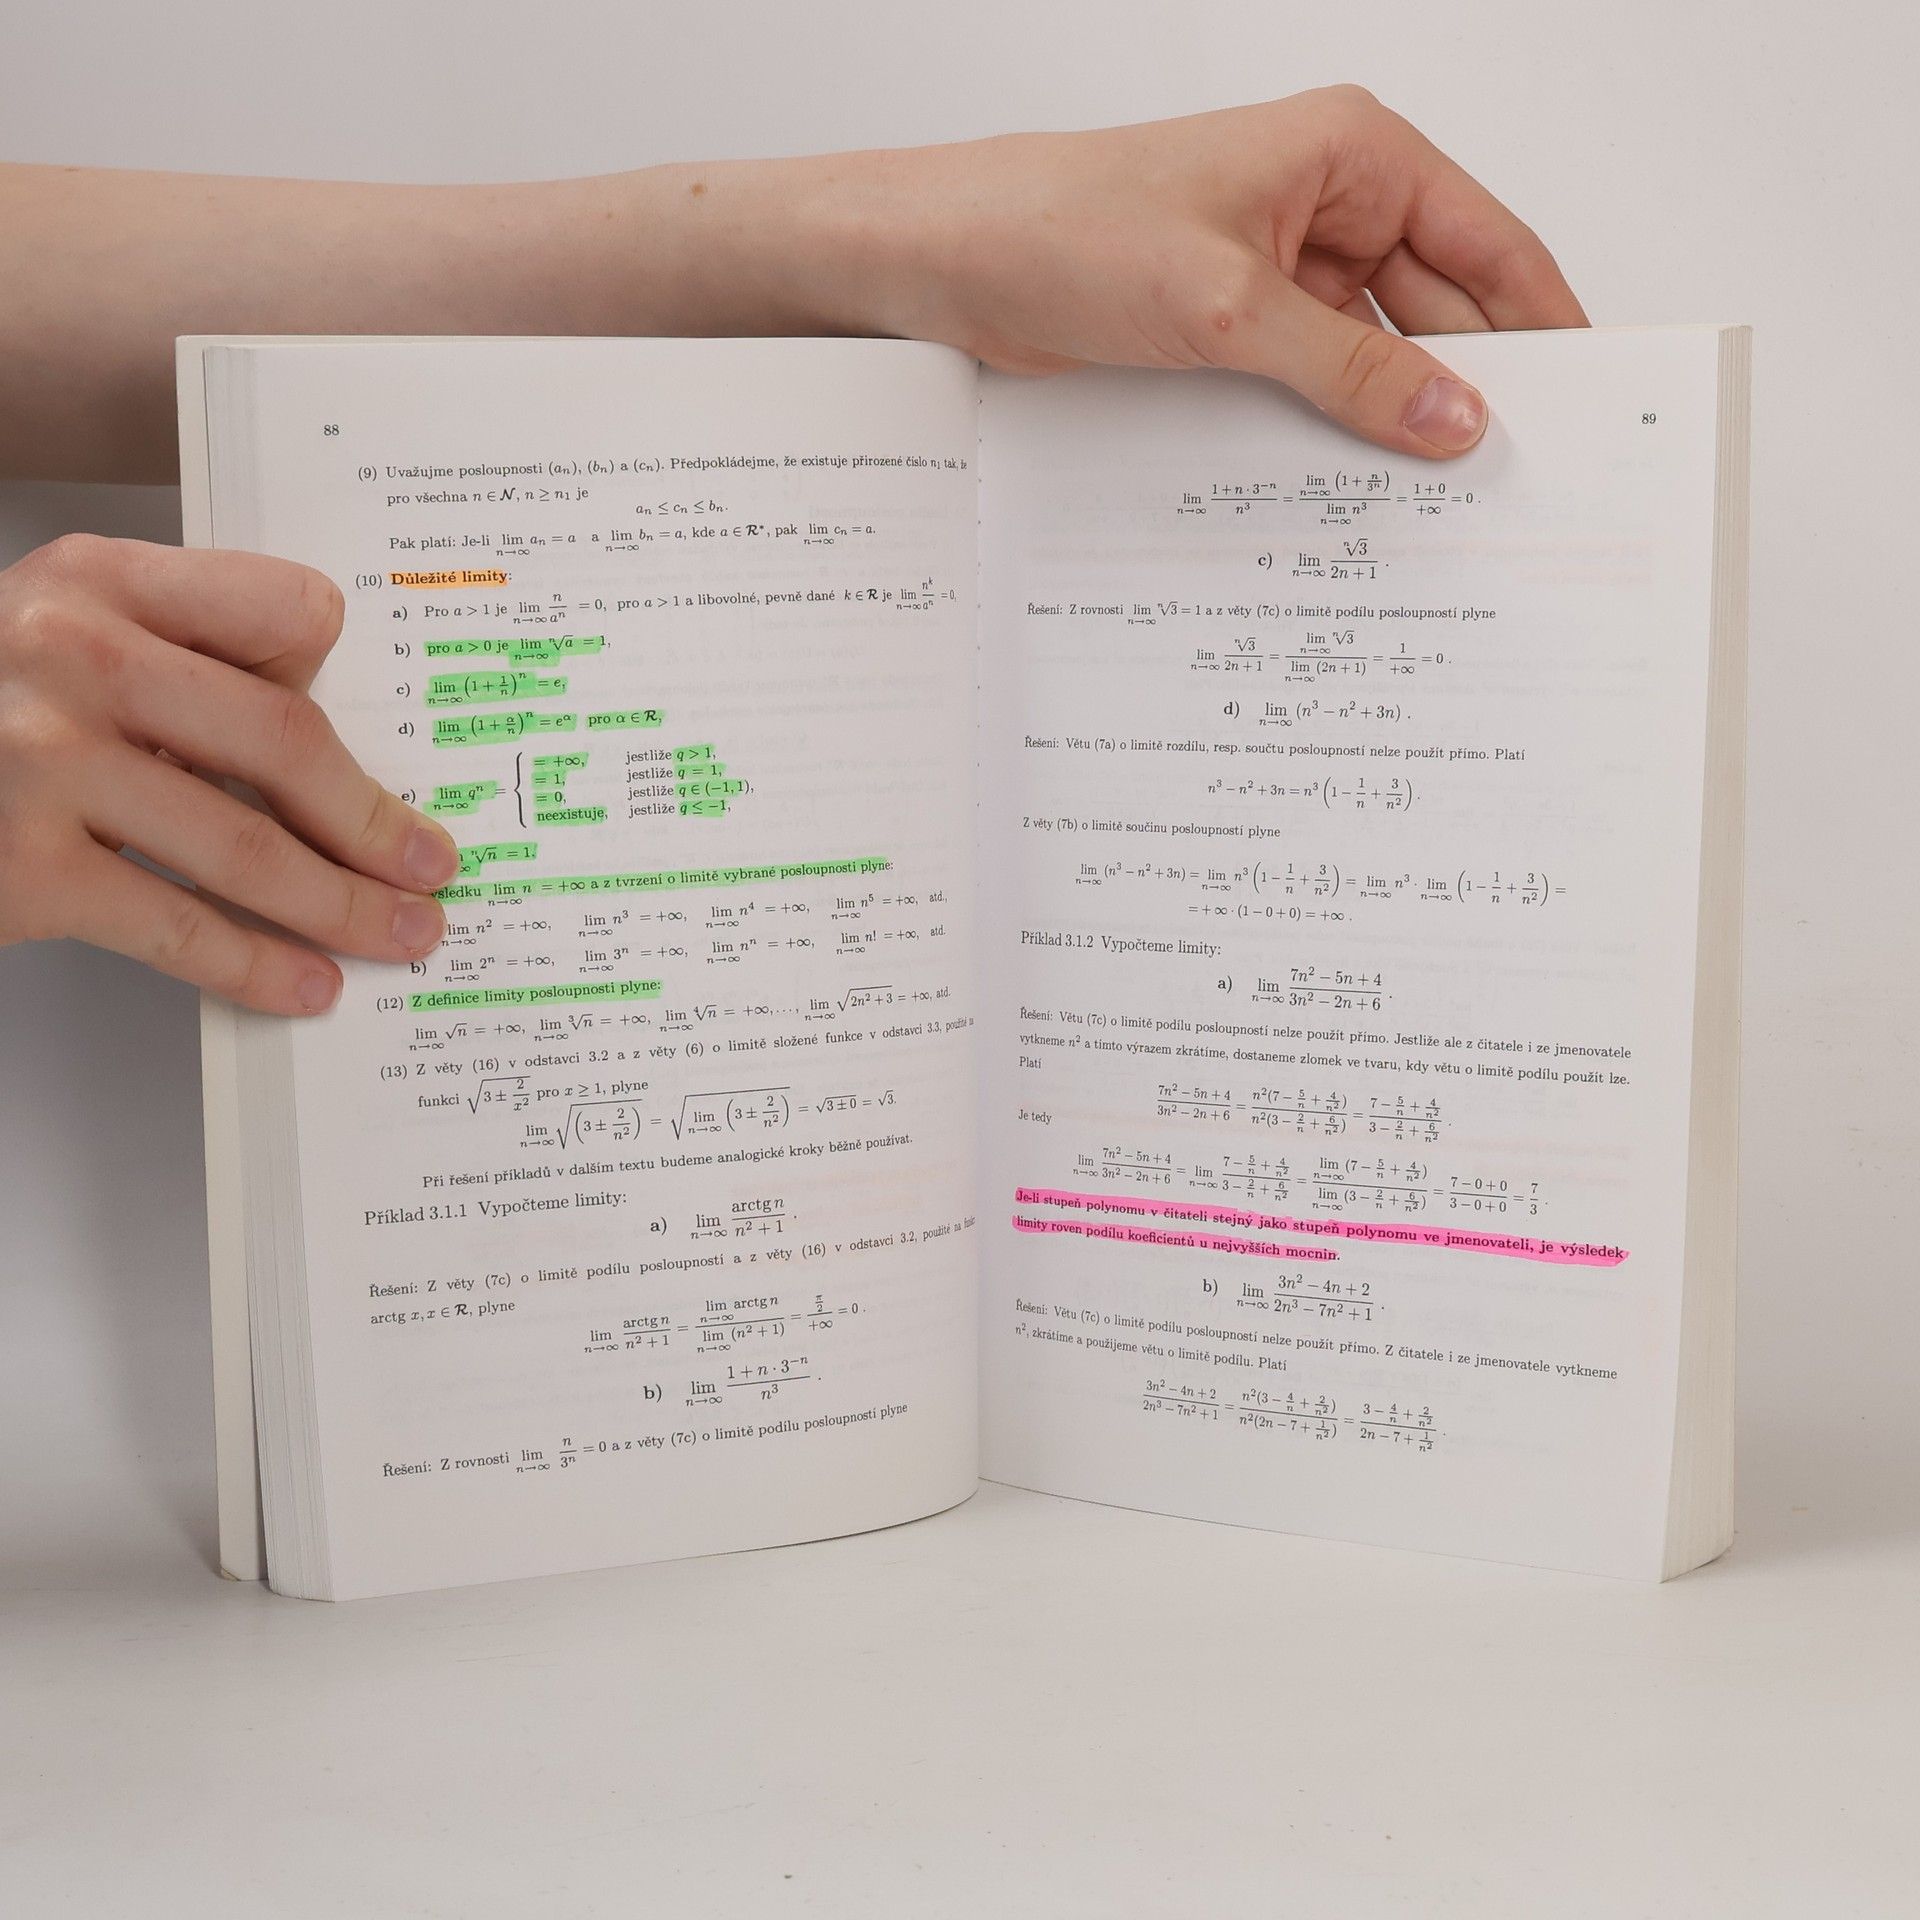 88
(9) Uvažujme posloupnosti (aₙ), (bₙ) a (cₙ). Předpokládejme, že existuje přirozené číslo n₁ tak, že
pro všechna n ∈ 𝒩, n ≥ n₁ je
aₙ ≤ cₙ ≤ bₙ.
Pak platí: Je-li lim_{n→∞} aₙ = a a lim_{n→∞} bₙ = a, kde a ∈ ℛ*, pak lim_{n→∞} cₙ = a.
(10) Důležité limity:
a) Pro a > 1 je lim_{n→∞} n/aⁿ = 0, pro a > 1 a libovolné, pevně dané k ∈ ℛ je lim_{n→∞} nᵏ/aⁿ = 0,
b) pro a > 0 je lim_{n→∞} ⁿ√a = 1,
c) lim_{n→∞} (1 + 1/n)ⁿ = e,
d) lim_{n→∞} (1 + α/n)ⁿ = e^α pro α ∈ ℛ,
e) lim_{n→∞} qⁿ = {
= +∞, jestliže q > 1,
= 1, jestliže q = 1,
= 0, jestliže q ∈ (−1, 1),
neexistuje, jestliže q ≤ −1,
ⁿ√n = 1.
lim_{n→∞} n = +∞ a z tvrzení o limitě vybrané posloupnosti plyne:
lim_{n→∞} n² = +∞, lim_{n→∞} n³ = +∞, lim_{n→∞} n⁴ = +∞, lim_{n→∞} n⁵ = +∞, atd.,
b) lim_{n→∞} 2ⁿ = +∞, lim_{n→∞} 3ⁿ = +∞, lim_{n→∞} nⁿ = +∞, lim_{n→∞} n! = +∞, atd.
(12) Z definice limity posloupnosti plyne:
lim_{n→∞} √n = +∞, lim_{n→∞} ³√n = +∞, lim_{n→∞} ⁴√n = +∞, …, lim_{n→∞} √(2n² + 3) = +∞, atd.
(13) Z věty (16) v odstavci 3.2 a z věty (6) o limitě složené funkce v odstavci 3.3, použité
funkci √(3 ± 2/x²) pro x ≥ 1, plyne
lim_{n→∞} √((3 ± 2/n²)) = √(lim_{n→∞} (3 ± 2/n²)) = √(3 ± 0) = √3.
Při řešení příkladů v dalším textu budeme analogické kroky běžně používat.
Příklad 3.1.1 Vypočteme limity:
a) lim_{n→∞} arctg n/(n² + 1) .
Řešení: Z věty (7c) o limitě podílu posloupností a z věty (16) v odstavci 3.2, použité na
arctg x, x ∈ ℛ, plyne
lim_{n→∞} arctg n/(n² + 1) = lim_{n→∞} arctg n / lim_{n→∞} (n² + 1) = (π/2)/+∞ = 0 .
b) lim_{n→∞} (1 + n · 3⁻ⁿ)/n³ .
Řešení: Z rovnosti lim_{n→∞} n/3ⁿ = 0 a z věty (7c) o limitě podílu posloupností plyne
89
lim_{n→∞} (1 + n · 3⁻ⁿ)/n³ = lim_{n→∞} (1 + n/3ⁿ) / lim_{n→∞} n³ = (1 + 0)/+∞ = 0 .
c) lim_{n→∞} ⁿ√3/(2n + 1) .
Řešení: Z rovnosti lim_{n→∞} ⁿ√3 = 1 a z věty (7c) o limitě podílu posloupností plyne
lim_{n→∞} ⁿ√3/(2n + 1) = lim_{n→∞} ⁿ√3 / lim_{n→∞} (2n + 1) = 1/+∞ = 0 .
d) lim_{n→∞} (n³ − n² + 3n) .
Řešení: Větu (7a) o limitě rozdílu, resp. součtu posloupností nelze použít přímo. Platí
n³ − n² + 3n = n³ (1 − 1/n + 3/n²) .
Z věty (7b) o limitě součinu posloupností plyne
lim_{n→∞} (n³ − n² + 3n) = lim_{n→∞} n³ (1 − 1/n + 3/n²) = lim_{n→∞} n³ · lim_{n→∞} (1 − 1/n + 3/n²) =
= +∞ · (1 − 0 + 0) = +∞ .
Příklad 3.1.2 Vypočteme limity:
a) lim_{n→∞} (7n² − 5n + 4)/(3n² − 2n + 6) .
Řešení: Větu (7c) o limitě podílu posloupností nelze použít přímo. Jestliže ale z čitatele i ze jmenovatele
vytkneme n² a tímto výrazem zkrátíme, dostaneme zlomek ve tvaru, kdy větu o limitě podílu použít lze.
Platí
(7n² − 5n + 4)/(3n² − 2n + 6) = n²(7 − 5/n + 4/n²)/n²(3 − 2/n + 6/n²) = (7 − 5/n + 4/n²)/(3 − 2/n + 6/n²) .
Je tedy
lim_{n→∞} (7n² − 5n + 4)/(3n² − 2n + 6) = lim_{n→∞} (7 − 5/n + 4/n²)/(3 − 2/n + 6/n²) = lim_{n→∞} (7 − 5/n + 4/n²) / lim_{n→∞} (3 − 2/n + 6/n²) = (7 − 0 + 0)/(3 − 0 + 0) = 7/3 .
Je-li stupeň polynomu v čitateli stejný jako stupeň polynomu ve jmenovateli, je výsledek
limity roven podílu koeficientů u nejvyšších mocnin.
b) lim_{n→∞} (3n² − 4n + 2)/(2n³ − 7n² + 1) .
Řešení: Větu (7c) o limitě podílu posloupností nelze použít přímo. Z čitatele i ze jmenovatele vytkneme
n², zkrátíme a použijeme větu o limitě podílu. Platí
(3n² − 4n + 2)/(2n³ − 7n² + 1) = n²(3 − 4/n + 2/n²)/n²(2n − 7 + 1/n²) = (3 − 4/n + 2/n²)/(2n − 7 + 1/n²) .